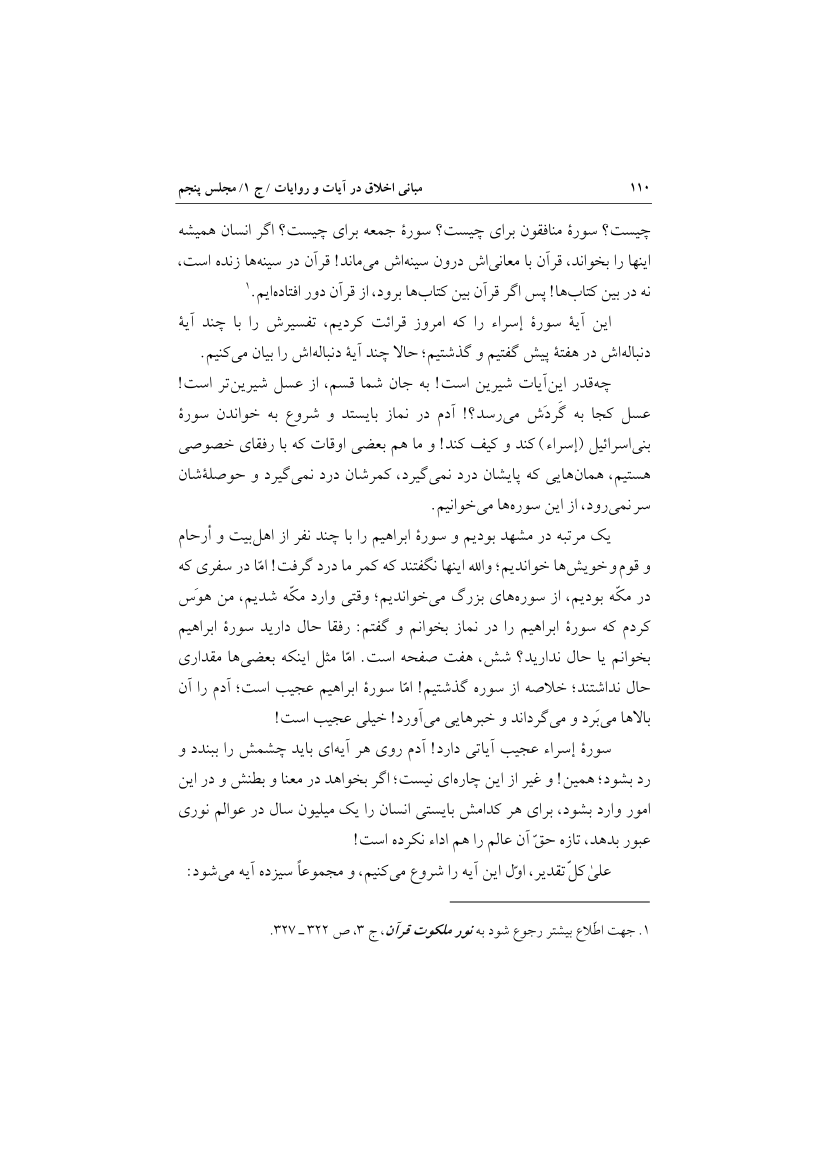 ۱۱۰ مبانی اخلاق در آیات و روایات / ج ۱/ مجلس پنجم
چیست؟ سورۀ منافقون برای چیست؟ سورۀ جمعه برای چیست؟ اگر انسان همیشه
اینها را بخواند، قرآن با معانی‌اش درون سینه‌اش می‌ماند! قرآن در سینه‌ها زنده است،
نه در بین کتاب‌ها! پس اگر قرآن بین کتاب‌ها برود، از قرآن دور افتاده‌ایم.۱
این آیۀ سورۀ إسراء را که امروز قرائت کردیم، تفسیرش را با چند آیۀ
دنباله‌اش در هفتۀ پیش گفتیم و گذشتیم؛ حالا چند آیۀ دنباله‌اش را بیان می‌کنیم.
چه‌قدر این‌آیات شیرین است! به جان شما قسم، از عسل شیرین‌تر است!
عسل کجا به گَردَش می‌رسد؟! آدم در نماز بایستد و شروع به خواندن سورۀ
بنی‌اسرائیل (إسراء) کند و کیف کند! و ما هم بعضی اوقات که با رفقای خصوصی
هستیم، همان‌هایی که پایشان درد نمی‌گیرد، کمرشان درد نمی‌گیرد و حوصلۀشان
سر نمی‌رود، از این سوره‌ها می‌خوانیم.
یک مرتبه در مشهد بودیم و سورۀ ابراهیم را با چند نفر از اهل‌بیت و أرحام
و قوم و خویش‌ها خواندیم؛ والله اینها نگفتند که کمر ما درد گرفت! امّا در سفری که
در مکّه بودیم، از سوره‌های بزرگ می‌خواندیم؛ وقتی وارد مکّه شدیم، من هوَس
کردم که سورۀ ابراهیم را در نماز بخوانم و گفتم: رفقا حال دارید سورۀ ابراهیم
بخوانم یا حال ندارید؟ شش، هفت صفحه است. امّا مثل اینکه بعضی‌ها مقداری
حال نداشتند؛ خلاصه از سوره گذشتیم! امّا سورۀ ابراهیم عجیب است؛ آدم را آن
بالاها می‌بَرد و می‌گرداند و خبرهایی می‌آورد! خیلی عجیب است!
سورۀ إسراء عجیب آیاتی دارد! آدم روی هر آیه‌ای باید چشمش را ببندد و
رد بشود؛ همین! و غیر از این چاره‌ای نیست؛ اگر بخواهد در معنا و بطنش و در این
امور وارد بشود، برای هر کدامش بایستی انسان را یک میلیون سال در عوالم نوری
عبور بدهد، تازه حقّ آن عالم را هم اداء نکرده است!
علیٰ کلّ تقدیر، اوّل این آیه را شروع می‌کنیم، و مجموعاً سیزده آیه می‌شود:
۱. جهت اطّلاع بیشتر رجوع شود به نور ملکوت قرآن، ج ۳، ص ۳۲۲ ـ ۳۲۷.